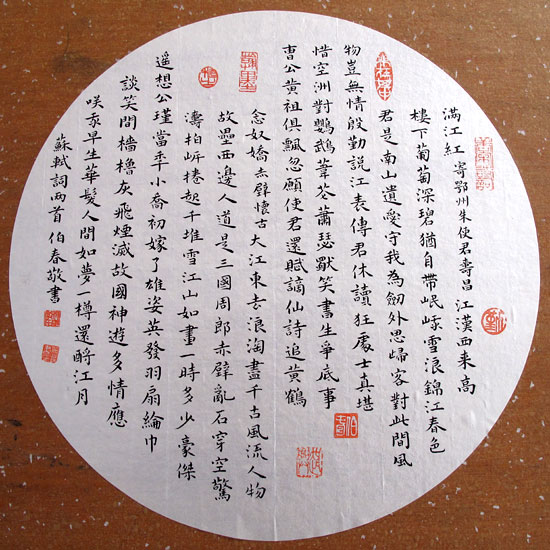 滿江紅 寄鄂州朱使君壽昌 江漢西来高
樓下葡萄深碧猶自帶岷峨雪浪錦江春色
君是南山遺愛守我為劒外思歸客對此間風
物豈無情殷勤說江表傳君休讀狂處士真堪
惜空洲對鸚鵡葦花蕭瑟獨笑書生爭底事
曹公黄祖俱飄忽願使君還賦謫仙詩追黄鶴
念奴嬌 赤壁懷古 大江東去浪淘盡千古風流人物
故壘西邊人道是三國周郎赤壁亂石穿空驚
濤拍岍捲起千堆雪江山如畫一時多少豪傑
遥想公瑾當年小喬初嫁了雄姿英發羽扇綸巾
談笑間檣櫓灰飛煙滅故國神遊多情應
咲我早生華髮人間如夢一樽還酹江月
蘇軾詞兩首 伯春敬書